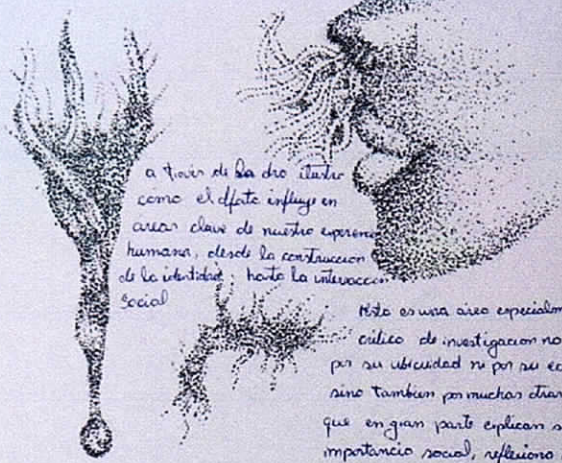 a través de la dro ilustro
como el olfato influye en
areas clave de nuestra experienc
humana, desde la construccion
de la identidad; hasta la interaccion
social
Esta es una area especialm
critico de investigacion no
por su ubicuidad ni por su ec
sino tambien por muchas otras
que en gran parte explican s
importancia social, reflexiono